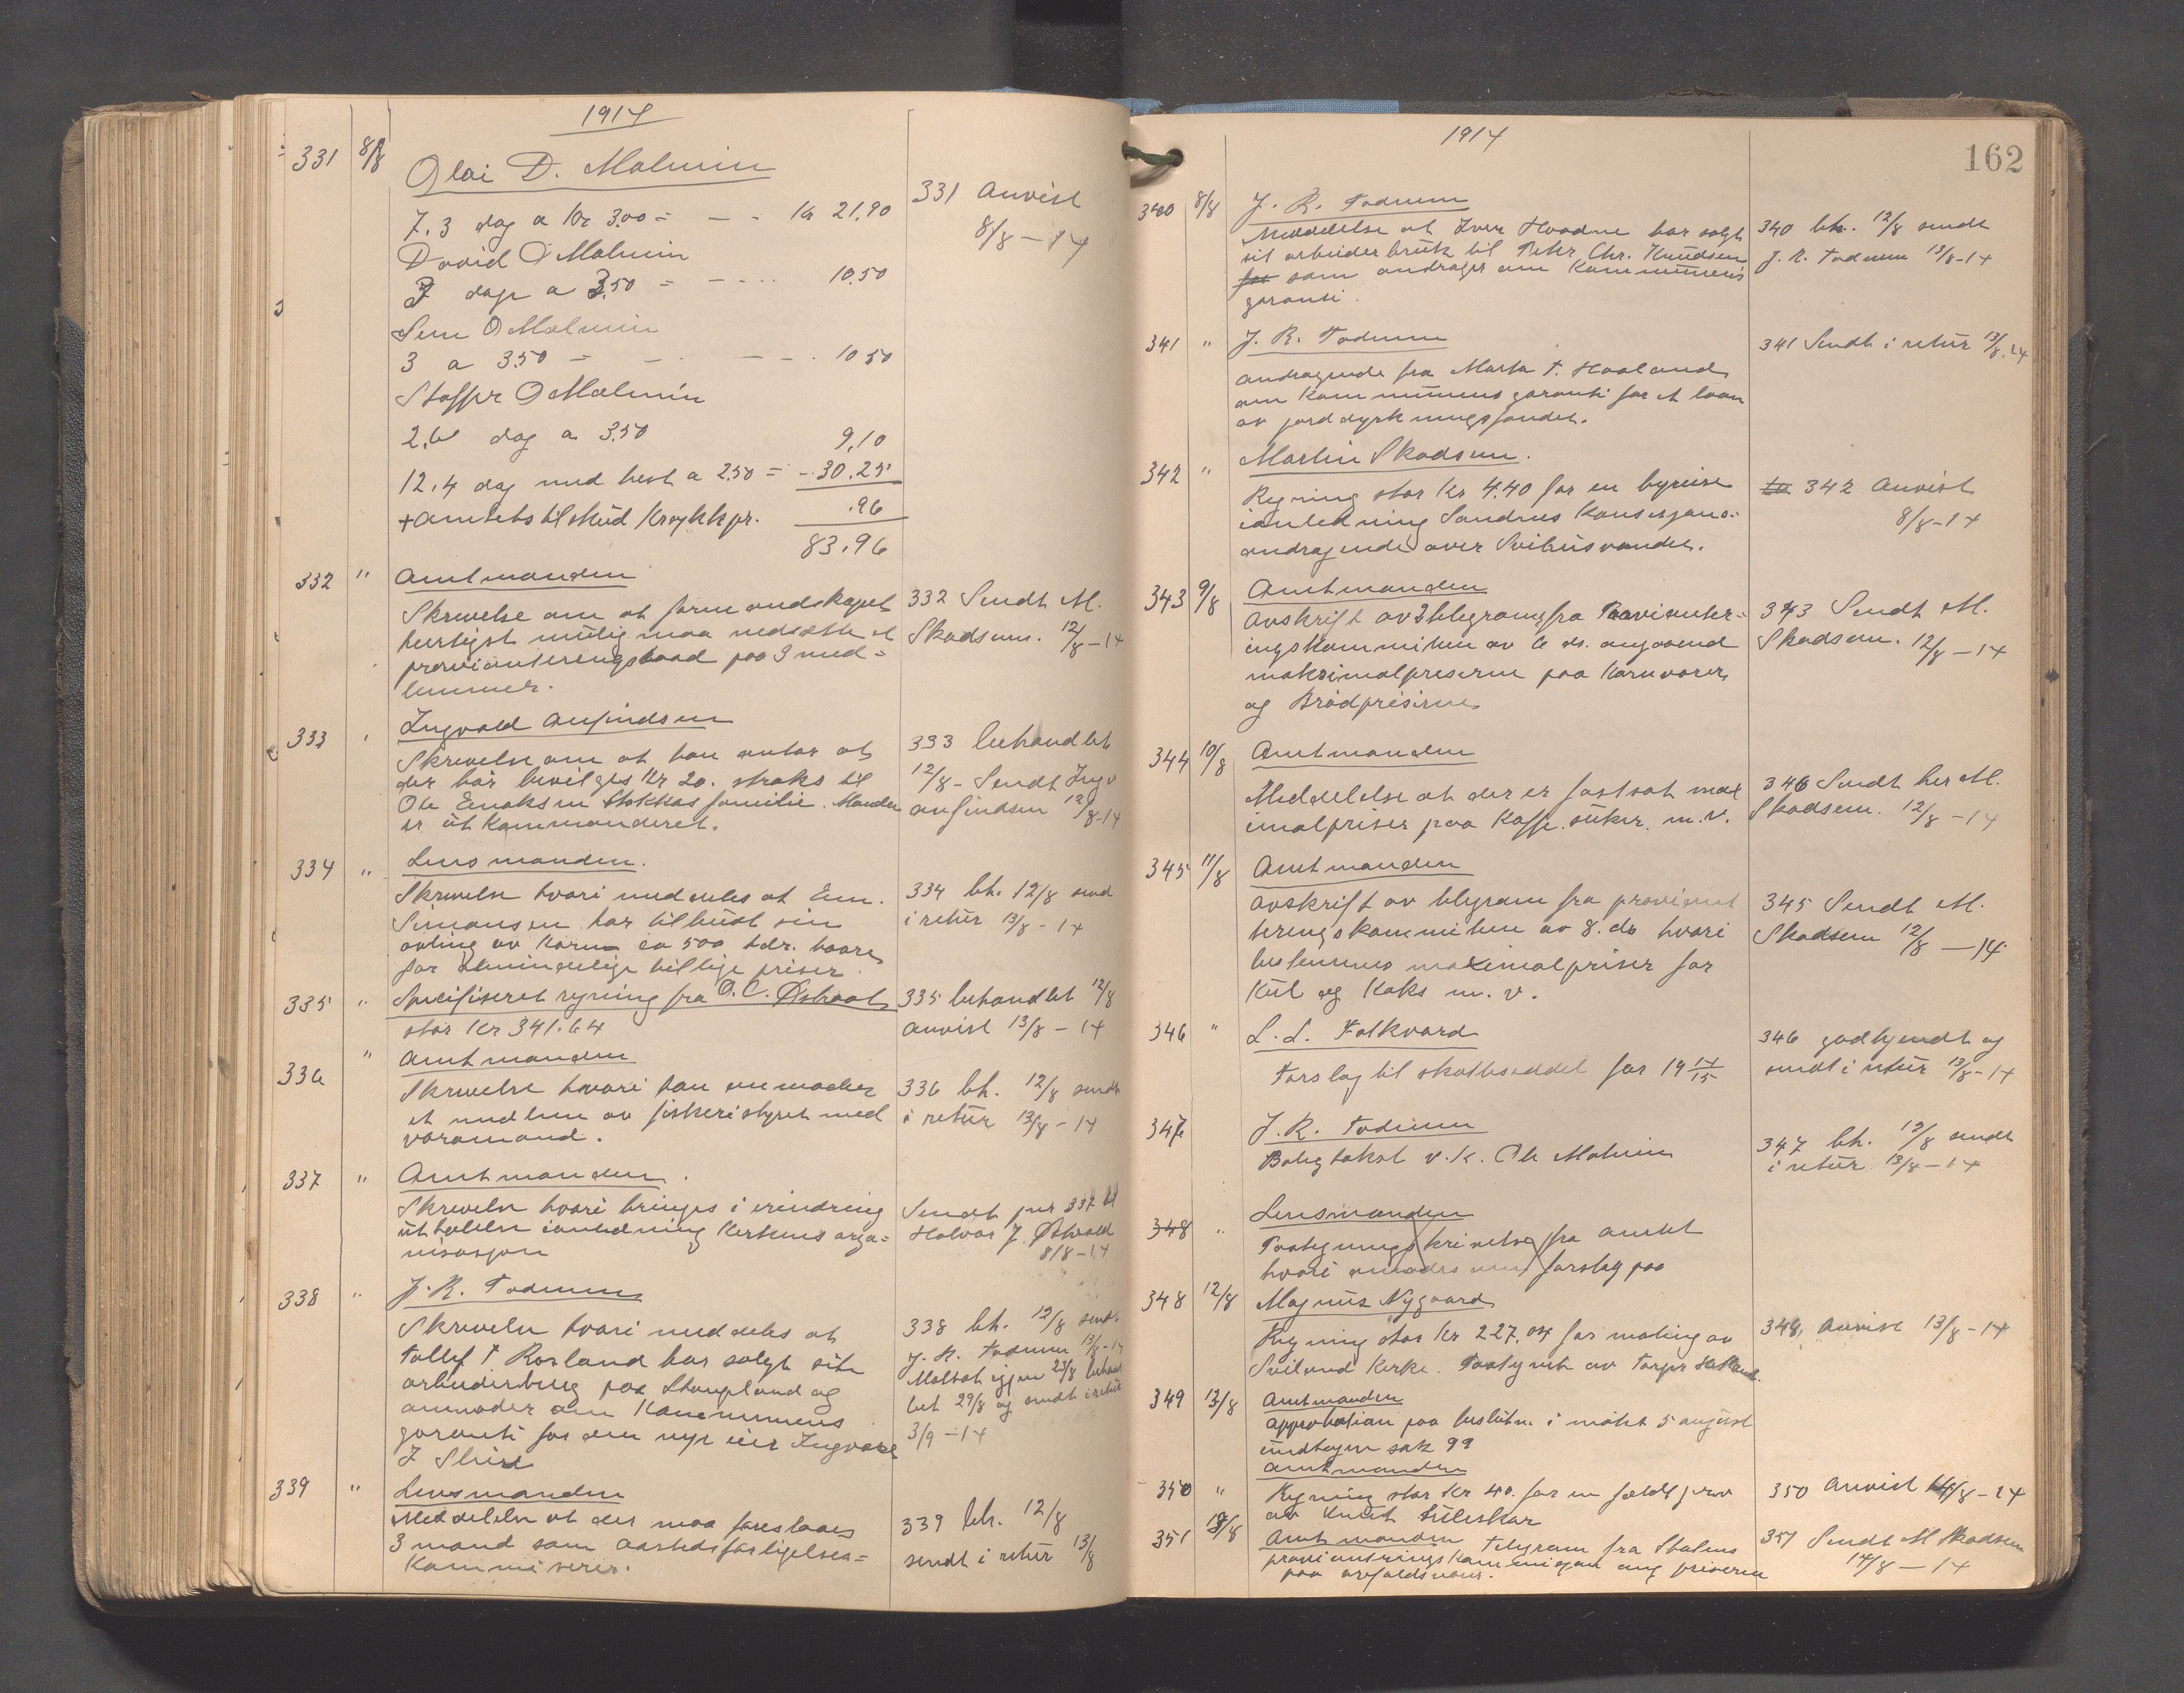 1914
331 8/8 Olai D. Malmin
7.3 dag a Kr 3.00 = — - Kr 21.90
David O Malmin
3 dage a 3.50 = - - ... 10.50
Sem O Malmin
3 a 3.50 = - . - - . 10 50
Staffer O Malmin
2.6 dag a 3.50 9.10
12.4 dag med hest a 2.50 = -.30.25
+ amtets tilskud .96
83.96
331 Anvist
8/8 - 14
332 " Amtmanden
Skrivelse om at formandskapet
hurtigst mulig maa nedsætte et
provianteringsraad paa 3 med=
lemmer.
332 Sendt M.
Skadsem. 12/8 - 14
333 " Ingvald Anfindsen
Skrivelse om at han antar at
der bør bevilges Kr 20. straks til
Ole Enoksen Stokkas familie. Manden
er utkommanderet.
333 behandlet
12/8 - Sendt Ingv
anfindsen 12/8-14
334 " Lensmanden.
Skrivelse hvori meddeles at Em.
Simonsen har tilbudt sin
avling av korn ca 500 tdr. havre
for almindelige billige priser.
334 bh. 12/8 send
i retur 13/8 - 14
335 " Specifiseret regning fra O. C. Østraat
stor Kr 341.64
335 behandlet 12/8
anvist 13/8 - 14
336 " Amtmanden
Skrivelse hvori han anmoder
et medlem av fiskeristyret med
varamand.
336 bh. 12/8 sendt
i retur 13/8 - 14
337 " Amtmanden.
Skrivelse hvori bringes i erindring
uttalelse ianledning Kerkens orga=
nisasjon
Sendt 337 til
Halvor J. Østraat
8/8 - 14
338 " J. R. Todnem
Skrivelse hvori meddeles at
Tollef T Rosland har solgt sit
arbeiderbrug paa Skeipland og
anmoder om Kommunens
garanti for den nye eier Ingvald
J
338 bh. 12/8 sendt
J. R. Todnem 13/8-14
Motat igjen 23/8 behand
let 29/8 og sendt i retur
3/9 - 14
339 " Lensmanden
Meddelelse at der maa foreslaaes
3 mand som aastedsforligelses=
kommiserer.
339 bh. 12/8
sendt i retur 13/8
1914
162
340 8/8 J. R. Todnem
Meddelelse at Iver Hvadne har solgt
sit arbeiderbruk til Peter Chr. Knudsen
for som andrager om Kommunens
garanti.
340 bh. 12/8 sendt
J. R. Todnem 13/8-14
341 " J. R. Todnem
andragende fra Marta T. Haaland
om Kommunens garanti for et laan
av jorddyrkningsfondet.
341 Sendt i retur 13/8.14
342 " Martin Skadsem.
Regning stor Kr 4.40 for en byreise
ianledning Sandnes Konsesjons=
andragende over Svihusvandet.
342 Anvist
8/8-14
343 9/8 Amtmanden
Avskrift av 2 telegram fra Provianter=
ingskommiteen av 6 ds. angaaend
maksimalpriserne paa kornvarer
og Brødpriserne
343 Sendt M.
Skadsem. 12/8 - 14
344 10/8 Amtmanden
Meddelelse at der er fastsat max
imalpriser paa kaffe. suker. m.v.
346 Sendt her M.
Skadsem. 12/8 - 14
345 11/8 Amtmanden
avskrift av telegram fra proviant
teringskommiteen av 8. ds hvori
bestemmes maximalpriser for
Kul og Koks m. v.
345 Sendt M.
Skadsem 12/8 — 14
346 " L. L. Folkvord
Forslag til skatteseddel for 19 14/15
346 godkjendt og
sendt i retur 13/8-14
347 J. R. Todnem
Boligtakst v. K. Ole Malmin
347 bh. 12/8 sendt
i retur 13/8 - 14
348 " Lensmanden
Paategningsskrivelse fra amtet
hvori anmodes om forslag paa
348 12/8 Magnus Nygaard
Regning stor Kr 227.04 for maling av
Sviland Kerke. Paategnet av Torger
348, anvist 13/8-14
349 13/8 Amtmanden
approbation paa beslutn. i møtet 5 august
undtagen sak 99
350 " Amtmanden
Regning stor Kr 40. for en
av Knut Suleskar
350 Anvist 14/8 - 14
351 13/8 Amtmanden Telegram fra Statens
provianteringskommisjon ang priserne
paa
351 Sendt M Skadsem
14/8 - 14